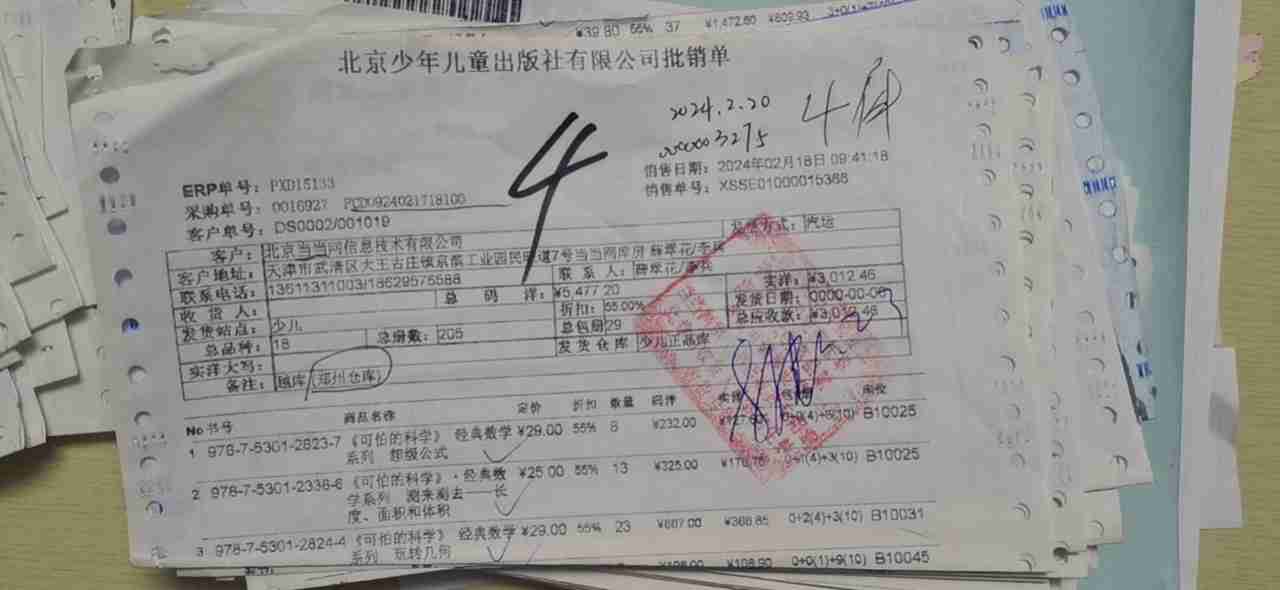 ¥39.80 55% 37 ¥1,472.60 ¥809.93
北京少年儿童出版社有限公司批销单
4
2024.2.20
000003275
ERP单号: PXD15133
销售日期: 2024年02月18日 09:41:18
采购单号: 0016927 PCD0924021718100
销售单号: XSSE01000015388
客户单号: DS0002/001019
客户: 北京当当网信息技术有限公司
发货方式: 汽运
客户地址: 天津市武清区大王古庄镇京滨工业园民旺道7号当当网库房 薛翠花/李兵
联系电话: 13611311003/18629575588
联系人: 薛翠花/李兵
实洋: ¥3,012.46
收货人:
总码洋: ¥5,477.20
折扣: 55.00%
发货日期: 0000-00-00
发货站点: 少儿
总包册 29
总应收款: ¥3,012.46
总品种: 18
总册数: 205
发货仓库 少儿正品库
实洋大写:
备注: 随库(郑州仓库)
No 书号 商品名称 定价 折扣 数量 码洋 实洋 库位
1 978-7-5301-2823-7 《可怕的科学》 经典数学 ¥29.00 55% 8 ¥232.00 0+0(4)+8(10) B10025
系列 超级公式
2 978-7-5301-2338-6 《可怕的科学》·经典数 ¥25.00 55% 13 ¥325.00 ¥178.75 0+1(4)+3(10) B10025
学系列 测来测去——长
度、面积和体积
3 978-7-5301-2824-4 《可怕的科学》 经典数学 ¥29.00 55% 23 ¥667.00 ¥366.85 0+2(4)+3(10) B10031
系列 玩转几何
¥108.90 0+0(1)+9(10) B10045